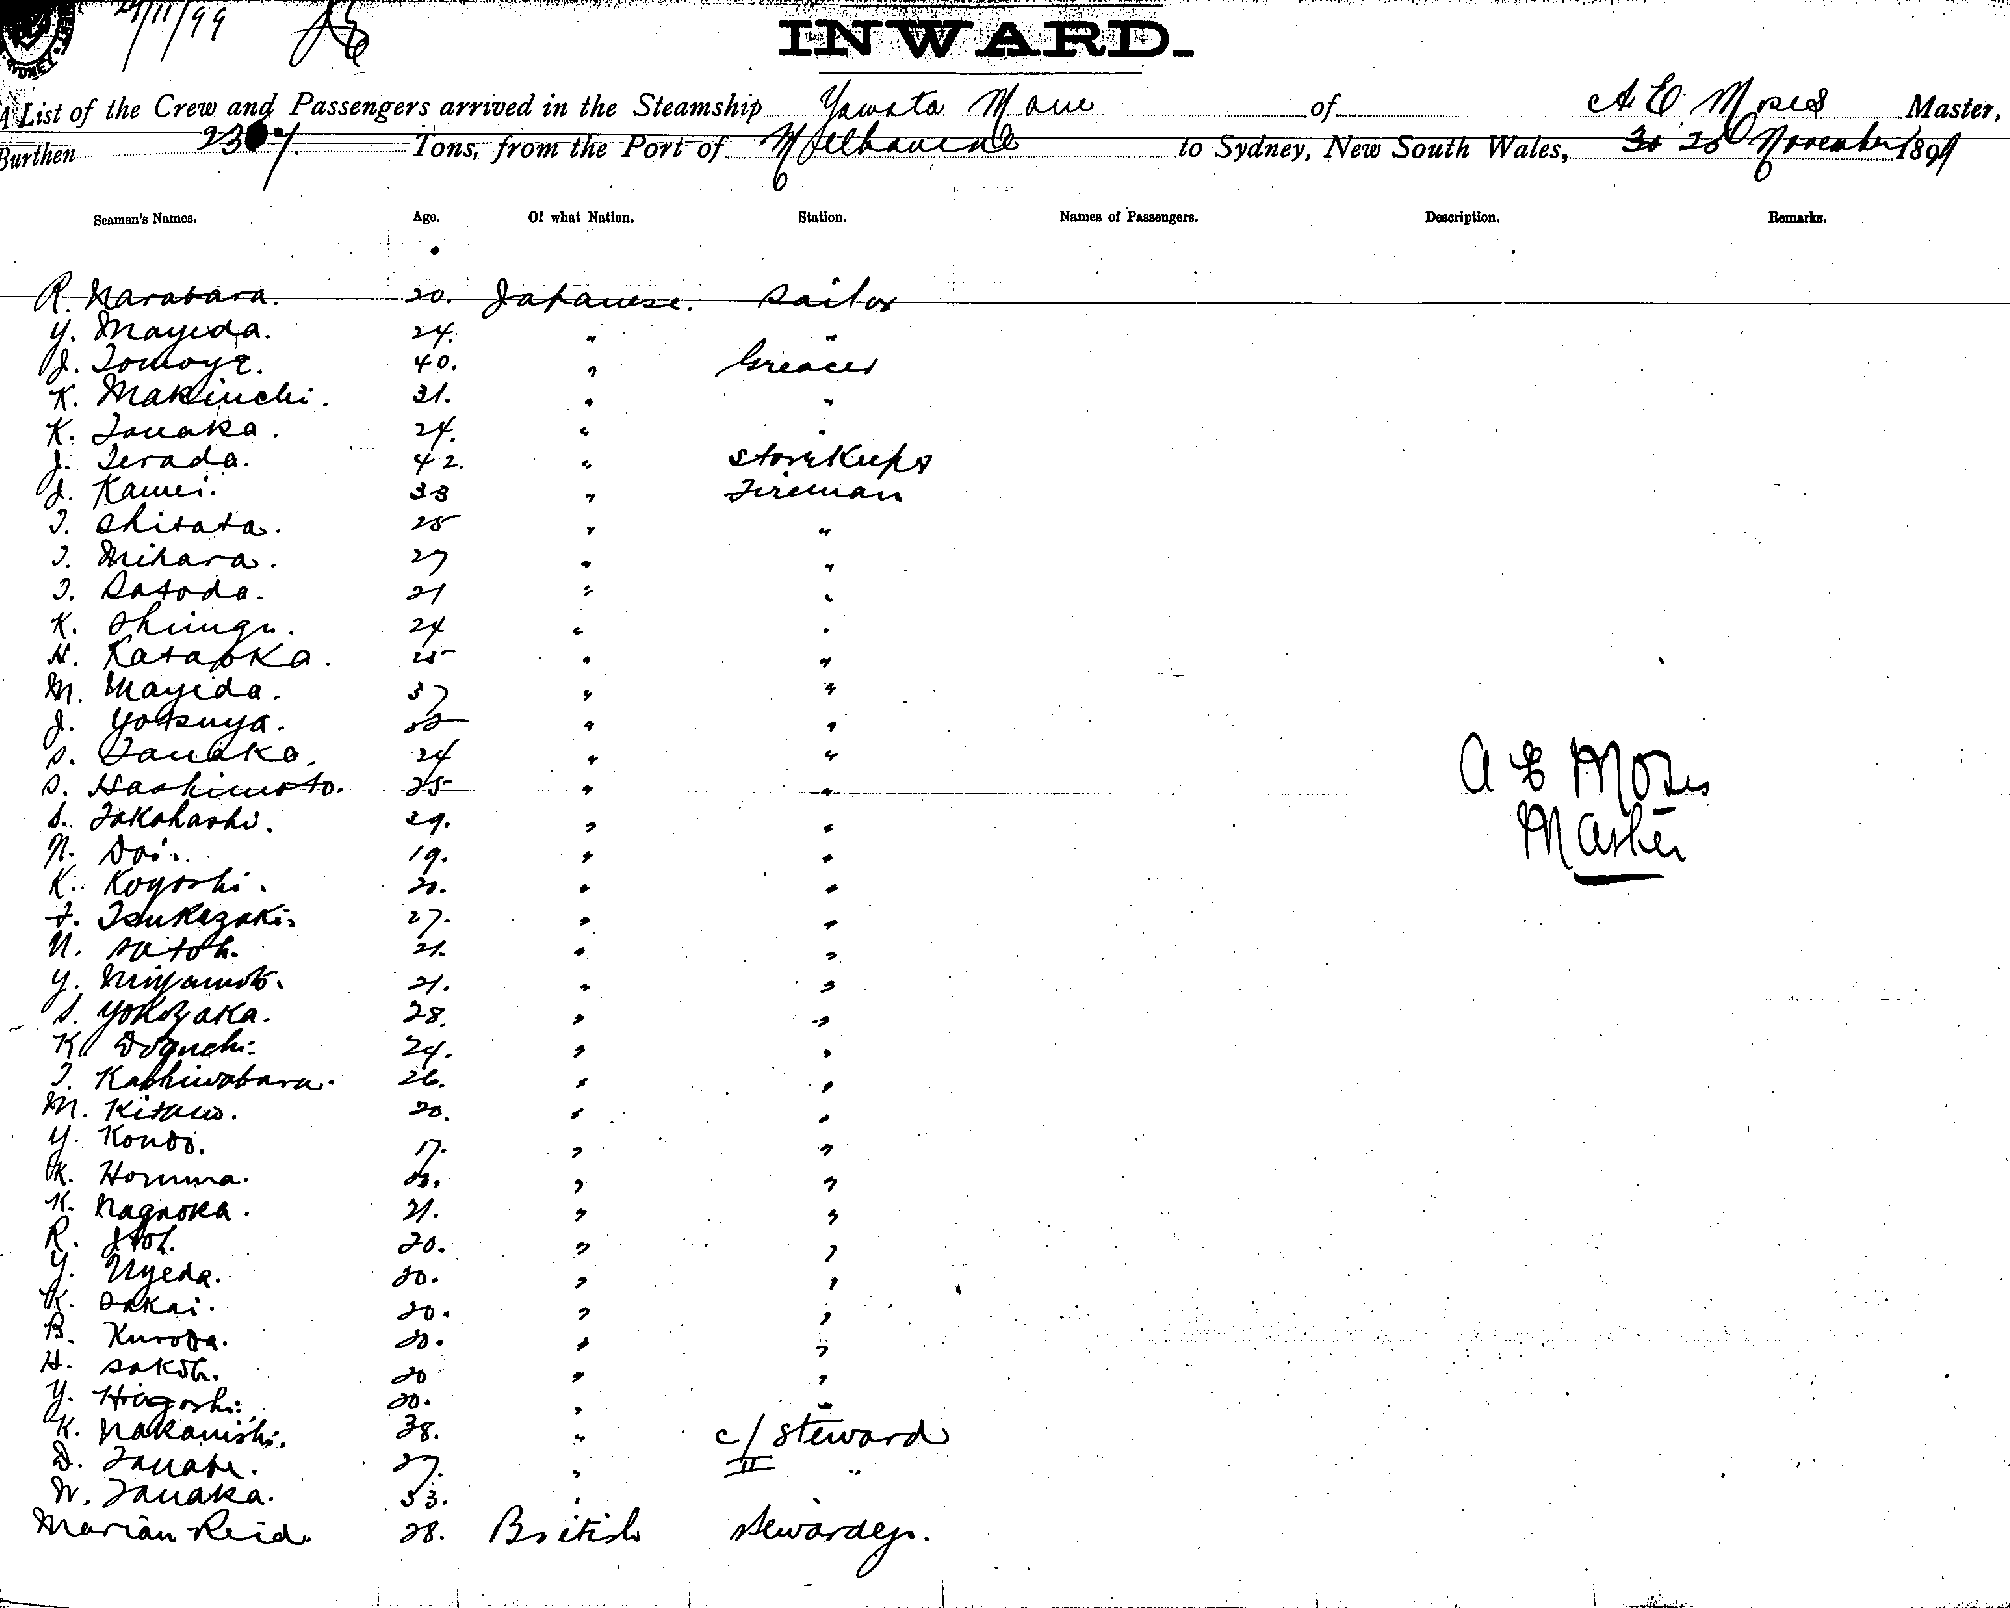 /11/99
INWARD.
A List of the Crew and Passengers arrived in the Steamship Yawata Maru of A E Moses Master,
Burthen Tons, from the Port of Melbourne to Sydney, New South Wales, 30 28 November 1899
Seaman's Names. Age. Of what Nation. Station. Names of Passengers. Description. Remarks.
R. Narabara. 20. Japanese. Sailor
Y. Mayeda. 24. " "
J. Tomoye. 40. " Greaser
K. Makiuchi. 31. " "
K. Tanaka. 24. " "
J. Terada. 42. " Storekeeper
J. Kamei. 33 " Fireman
T. Shibata. 25 " "
T. Mihara. 27 " "
T. Satoda. 21 " "
K. Shingu. 24 " "
H. Kataoka. 25 " "
M. Mayeda. 37 " "
J. Yotsuya. " "
S. Tanaka. 24 " "
S. Hashimoto. 25 " "
S. Takahashi. 29. " "
N. Doi. 19. " "
K. Koyoshi. 20. " "
T. Tsukazaki. 27. " "
N. Satoh. 21. " "
Y. Miyamoto. 21. " "
S. Yokozaka. 28. " "
K. Doguchi. 24. " "
T. Kashiwabara. 26. " "
M. Kitano. 20. " "
Y. Kondo. 17. " "
K. Homma. " "
K. Nagaoka. 21. " "
R. Itoh. 20. " "
Y. Uyeda. 20. " "
K. Sakai. 20. " "
B. Kuroda. 20. " "
H. Sakoh. 20 " "
Y. Higashi. 20. " "
K. Nakanishi. 38. " c/ Steward
D. Tanabe. 27. " II "
N. Tanaka. 33. " "
Marian Reid 28. British Stewardess.
A E Moses
Master